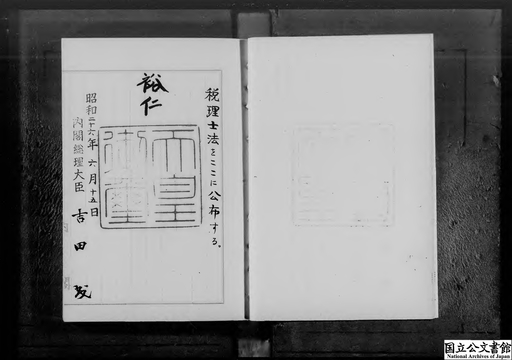 税理士法をここに公布する。
裕仁
天皇御璽
昭和二十六年六月十五日
内閣総理大臣 吉田茂
国立公文書館
National Archives of Japan